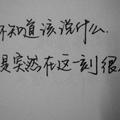 不知道该说什么.
是突然在这一刻很